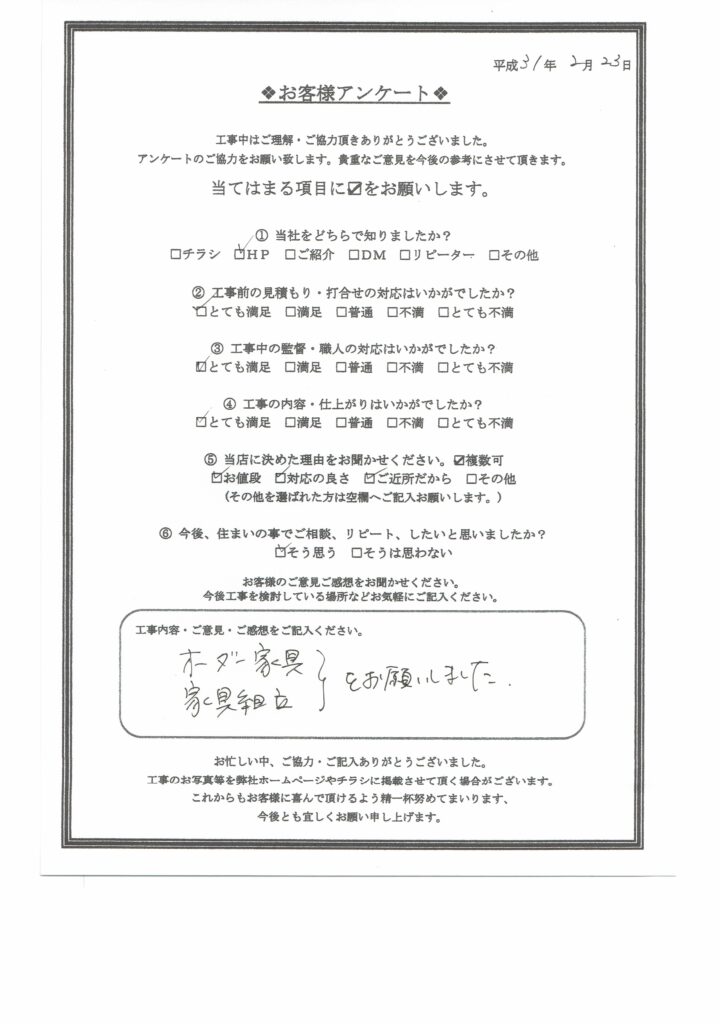 平成31年 2月23日
❖お客様アンケート❖
工事中はご理解・ご協力頂きありがとうございました。
アンケートのご協力をお願い致します。貴重なご意見を今後の参考にさせて頂きます。
当てはまる項目に☑をお願いします。
① 当社をどちらで知りましたか？
□チラシ ☑HP □ご紹介 □DM □リピーター □その他
② 工事前の見積もり・打合せの対応はいかがでしたか？
☑とても満足 □満足 □普通 □不満 □とても不満
③ 工事中の監督・職人の対応はいかがでしたか？
☑とても満足 □満足 □普通 □不満 □とても不満
④ 工事の内容・仕上がりはいかがでしたか？
☑とても満足 □満足 □普通 □不満 □とても不満
⑤ 当店に決めた理由をお聞かせください。☑複数可
☑お値段 ☑対応の良さ ☑ご近所だから □その他
（その他を選ばれた方は空欄へご記入お願いします。）
⑥ 今後、住まいの事でご相談、リピート、したいと思いましたか？
☑そう思う □そうは思わない
お客様のご意見ご感想をお聞かせください。
今後工事を検討している場所などお気軽にご記入ください。
工事内容・ご意見・ご感想をご記入ください。
オーダー家具
家具組立 } をお願いしました.
お忙しい中、ご協力・ご記入ありがとうございました。
工事のお写真等を弊社ホームページやチラシに掲載させて頂く場合がございます。
これからもお客様に喜んで頂けるよう精一杯努めてまいります、
今後とも宜しくお願い申し上げます。